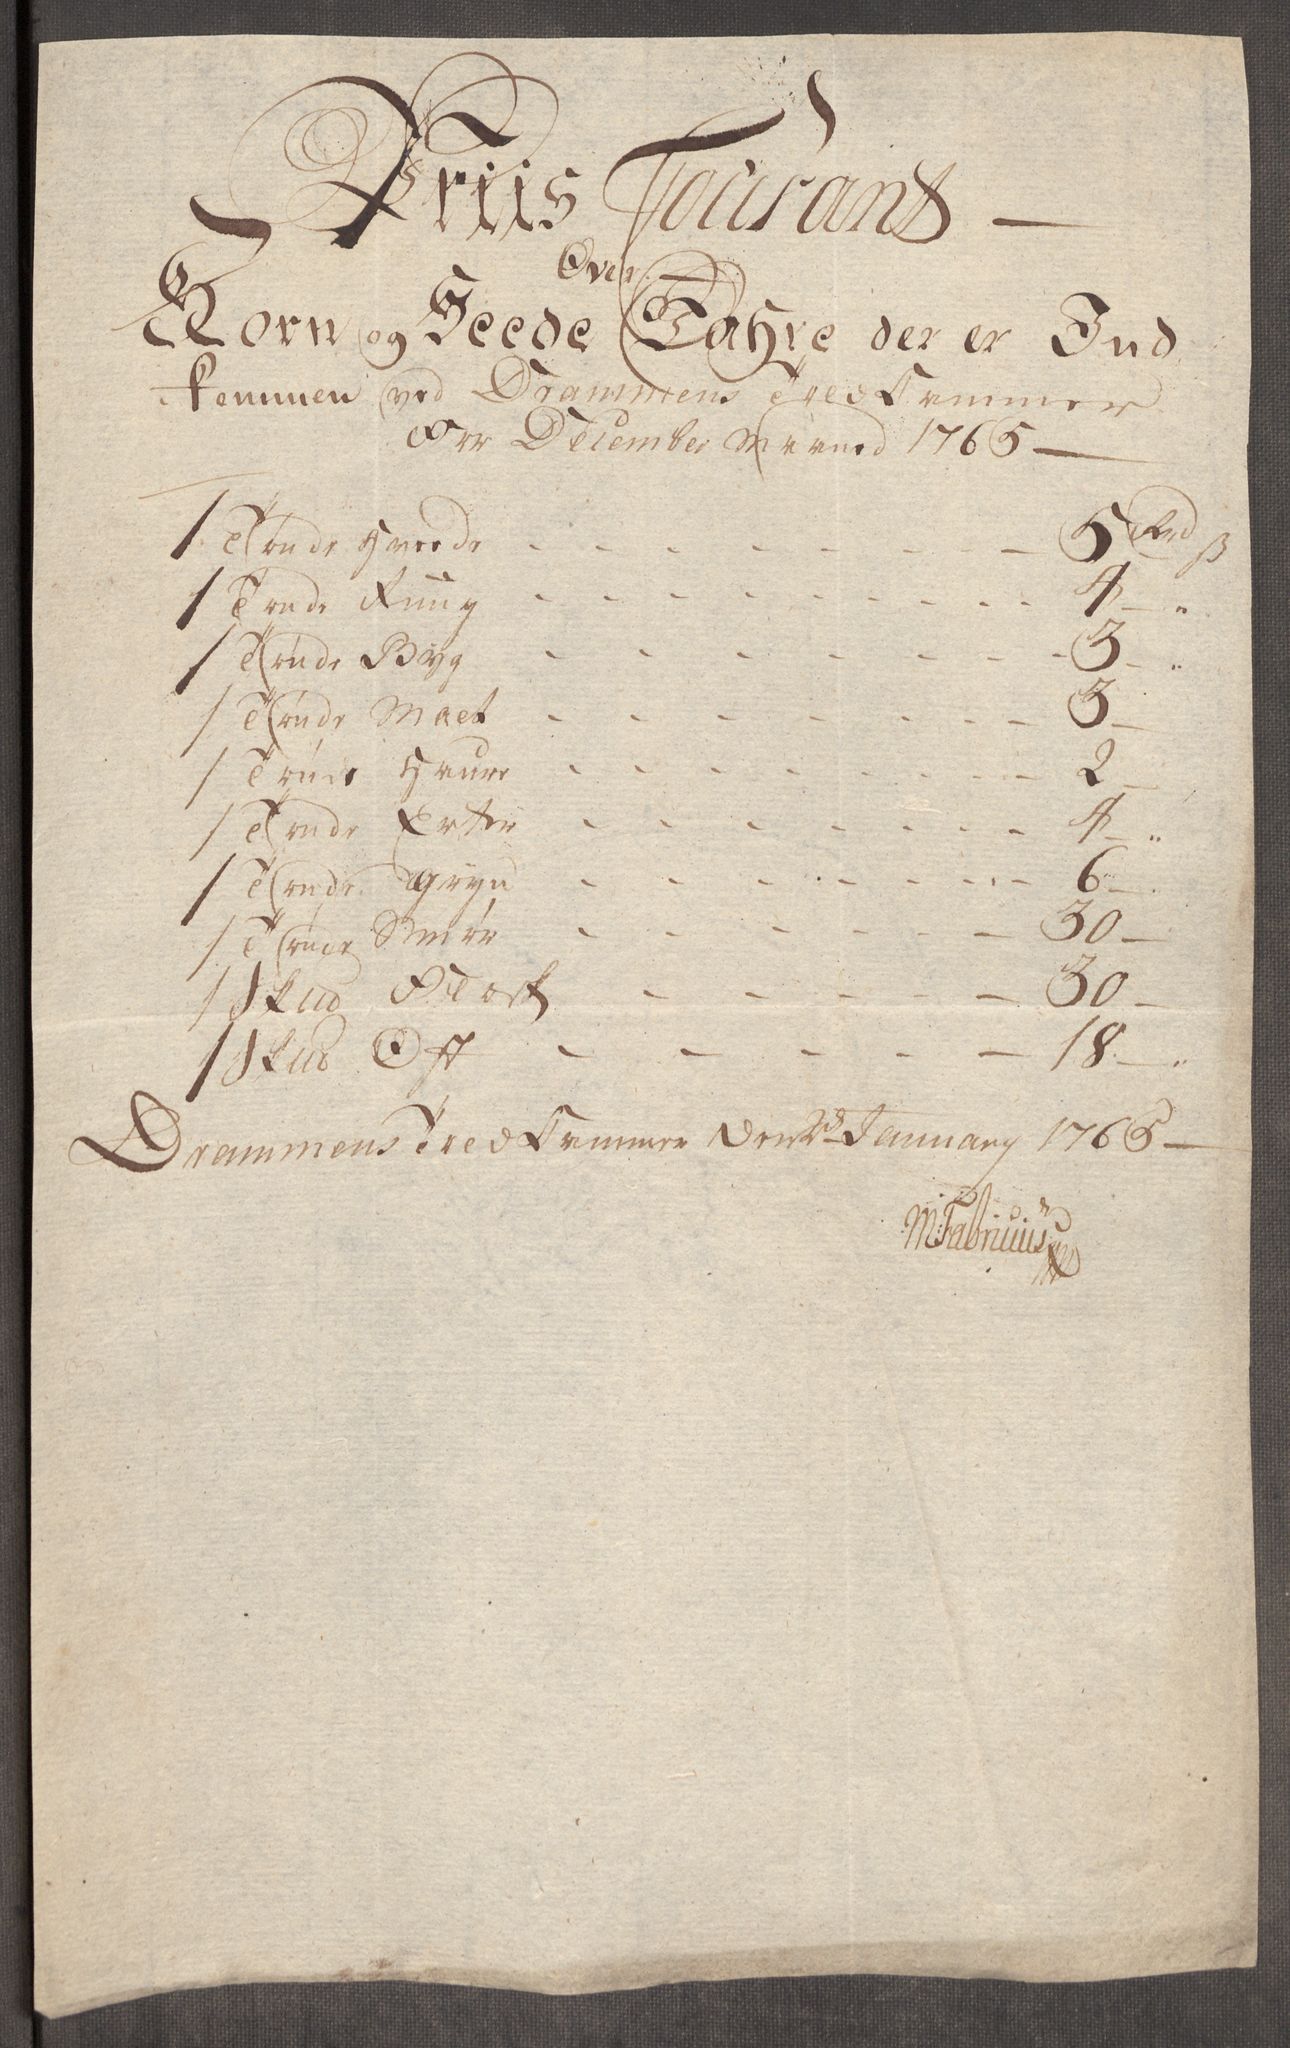 Priis Courant —
Over
Korn og Feede Vahre der er Ind
kommen ved Drammens Sted Cammer
For December Maaned 1765 —
1 Tønde Hveede - - - - - - - 5 Rd ß
1 Tønde Ruug - - - - - - - - - 4 — "
1 Tønde Byg - - - - - - - - 3 — "
1 Tønde Malt - - - - - - - 3 —
1 Tønde Haure - - - - - - - 2 —
1 Tønde Erter - - - - - - - 4 — "
1 Tønde Gryn - - - - - - - 6 —
1 Tønde Smør - - - - - - - 30 —
1 Skud - - - - - 30 —
1 Skud - - - - - 18 — "
Drammens Sted Cammer den January 1765 —
M: Fabritius